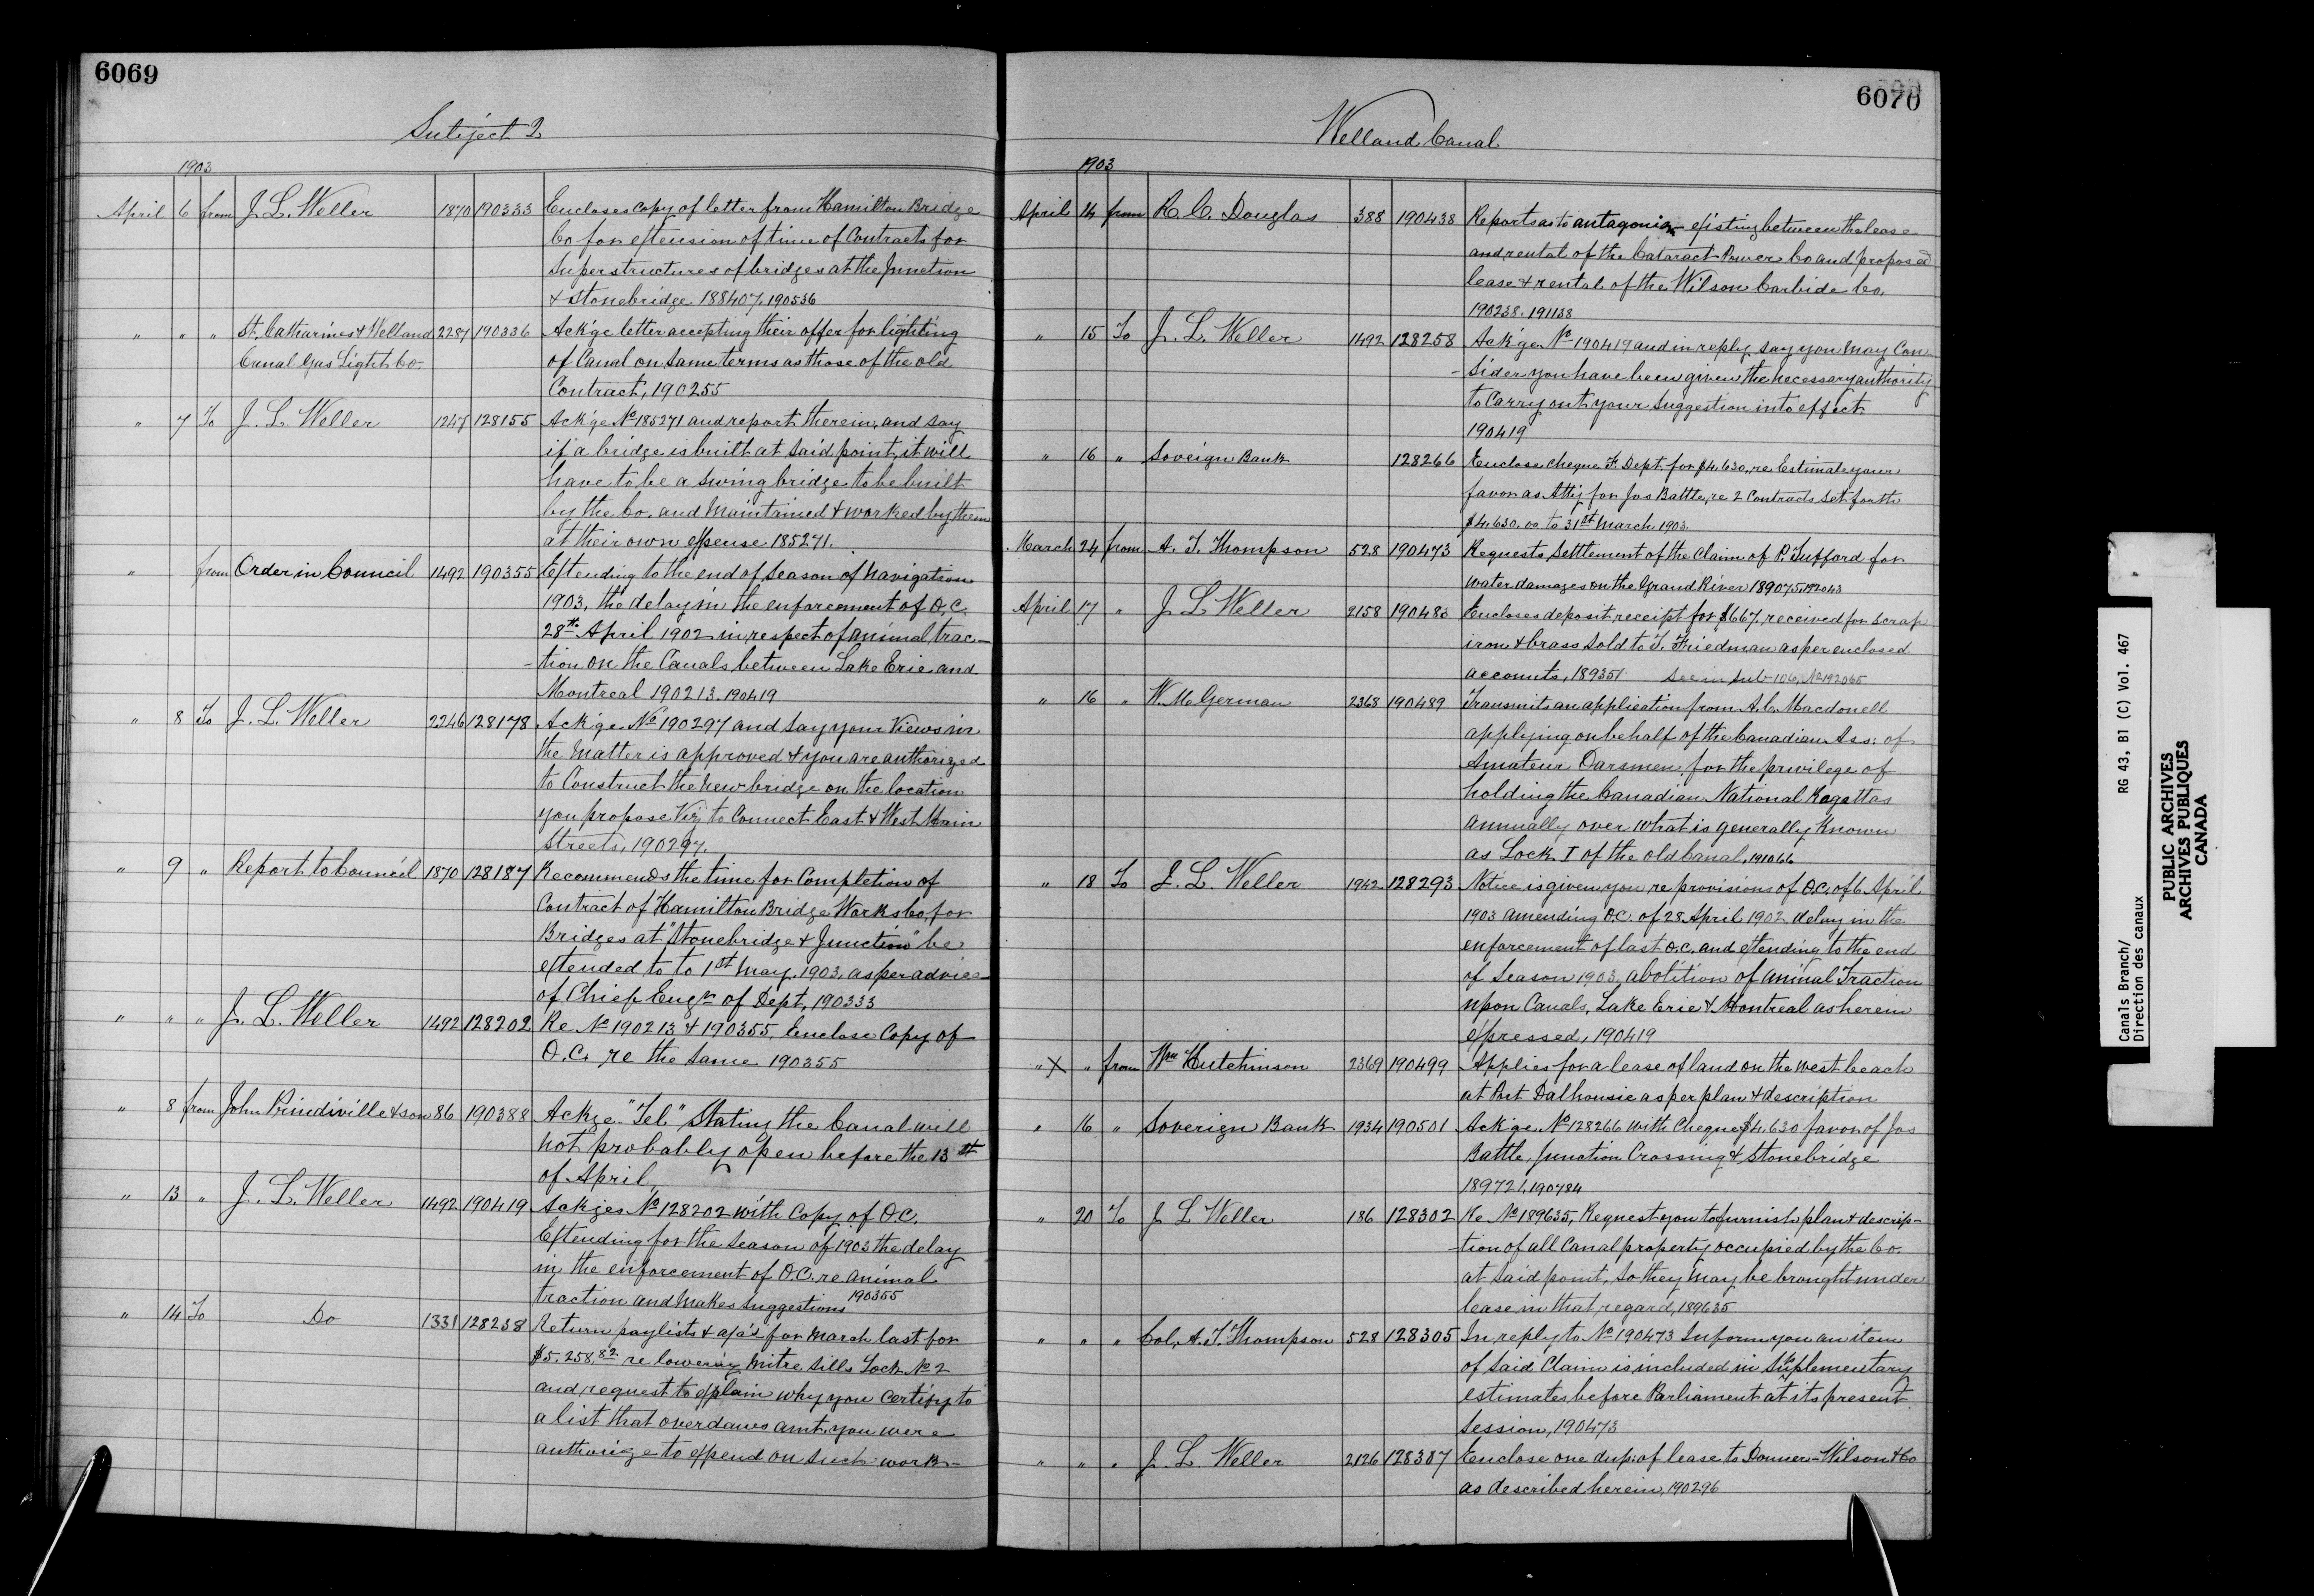 6069
Subject 2
1903
April 6 from J. L. Weller 1870 190333 Encloses copy of letter from Hamilton Bridge
Co for extension of time of Contracts for
Superstructures of bridges at the Junction
& Stonebridge 188407. 190536
" " " St. Catharines & Welland 2287 190336 Ack'ge letter accepting their offer for lighting
Canal Gas Light Co. of Canal on same terms as those of the old
Contract, 190255
" 7 To J. L. Weller 1247 128155 Ack'ge No 185271 and report therein, and say
if a bridge is built at said point, it will
have to be a swing bridge to be built
by the Co. and Maintained & worked by them
at their own expense 185271.
" from Order in Council 1492 190355 Extending to the end of Season of Navigation
1903, the delay in the enforcement of O.C.
28th April 1902 in respect of animal trac-
-tion on the Canals between Lake Erie and
Montreal 190213. 190419
" 8 To J. L. Weller 2246 128178 Ack'ge No 190297 and say your Views in
the Matter is approved & you are authorized
to Construct the new bridge on the location
you propose Viz to Connect East & West Main
Streets, 190297.
" 9 " Report to Council 1870 128187 Recommends the time for Completion of
Contract of Hamilton Bridge Works Co, for
Bridges at "Stonebridge & Junction" be
extended to to 1st May. 1903. as per advice
of Chief Engr of Dept, 190333
" " " J. L. Weller 1492 128202 Re No 190213 & 190355, Enclose Copy of
O.C. re the same 190355
" 8 from John & son 86 190388 Ackge "Tel" Stating the Canal will
not probably open before the 13st
of April,
" 13 " J. L. Weller 1492 190419 Ackges No 128202 with Copy of O.C.
Extending for the Season of 1903 the delay
in the enforcement of O.C. re animal
traction and Makes Suggestions 190355
" 14 To Do 1331 128238 Return paylists & a/a's for March last for
$5,258.82 re lowering Mitre Sills Lock No 2
and request to explain why you Certify to
a list that overdaws amt. you were
authorize to expend on such work-
6070
Welland Canal
1903
April 14 from R. C. Douglas 388 190438 Reports as to antagonism existing between the lease
and rental of the Cataract Power Co and proposed
lease & rental of the Wilson Carbide Co.
190238. 191138
" 15 To J. L. Weller 1492 128258 Ack'ge No 190419 and in reply say you May Con-
-sider you have been given the necessary authority
to Carry out your Suggestion into effect
190419
" 16 " Soveign Bank 128266 Enclose cheque F. Dept. for $4.630, re Estimate your
favor as Att'y for Jas Battle, re 2 Contracts set forth
$4.630.00 to 31st March 1903.
March 24 from A. T. Thompson 528 190473 Requests Settlement of the Claim of P. for
water damages on the Grand River 189075. 192043
April 17 " J L Weller 2158 190483 Encloses deposit receipt for $667. received for scrap
iron & brass sold to T. Friedman as per enclosed
accounts, 189351 See in Sub 106, No 192065
" 16 " W. M. German 2368 190489 Transmits an application from A. C. Macdonell
applying on behalf of the Canadian Ass: of
Amateur Oarsmen, for the privilege of
holding the Canadian National Regattas
annually over what is generally Known
as Lock 1 of the old Canal, 191066
" 18 To J. L. Weller 1942 128293 Notice is given you, re provisions of O.C. of 6 April
1903 amending O.C. of 28 April 1902 delay in the
enforcement of last O.C. and etending to the end
of Season 1903, abolition of animal Traction
upon Canals, Lake Erie & Montreal as herein
expressed, 190419
" X " from Wm Hutchinson 2369 190499 Applies for a lease of land on the west beach
at Port Dalhousie as per plan & description
" 16 " Soverign Bank 1934 190501 Ack'ge No 128266 with Cheque $4,630 favor of Jas
Battle, Junction Crossing & Stonebridge
189721, 190784
" 20 To J L Weller 186 128302 Re No 189635, Request you to furnish plan & descrip-
-tion of all Canal property occupied by the Co.
at said point, so they may be brought under
lease in that regard, 189635
" " " Col. A. T. Thompson 528 128305 In reply to No 190473 Inform you an item
of said Claim is included in Supplementary
estimates before Parliament at its present
Session, 190473
" " " J. L Weller 2126 128307 Enclose one dup: of lease to Donner-Wilson & Co
as described herein, 190296
Canals Branch/ RG 43, B1 (C) Vol. 467
Direction des canaux
PUBLIC ARCHIVES
ARCHIVES PUBLIQUES
CANADA